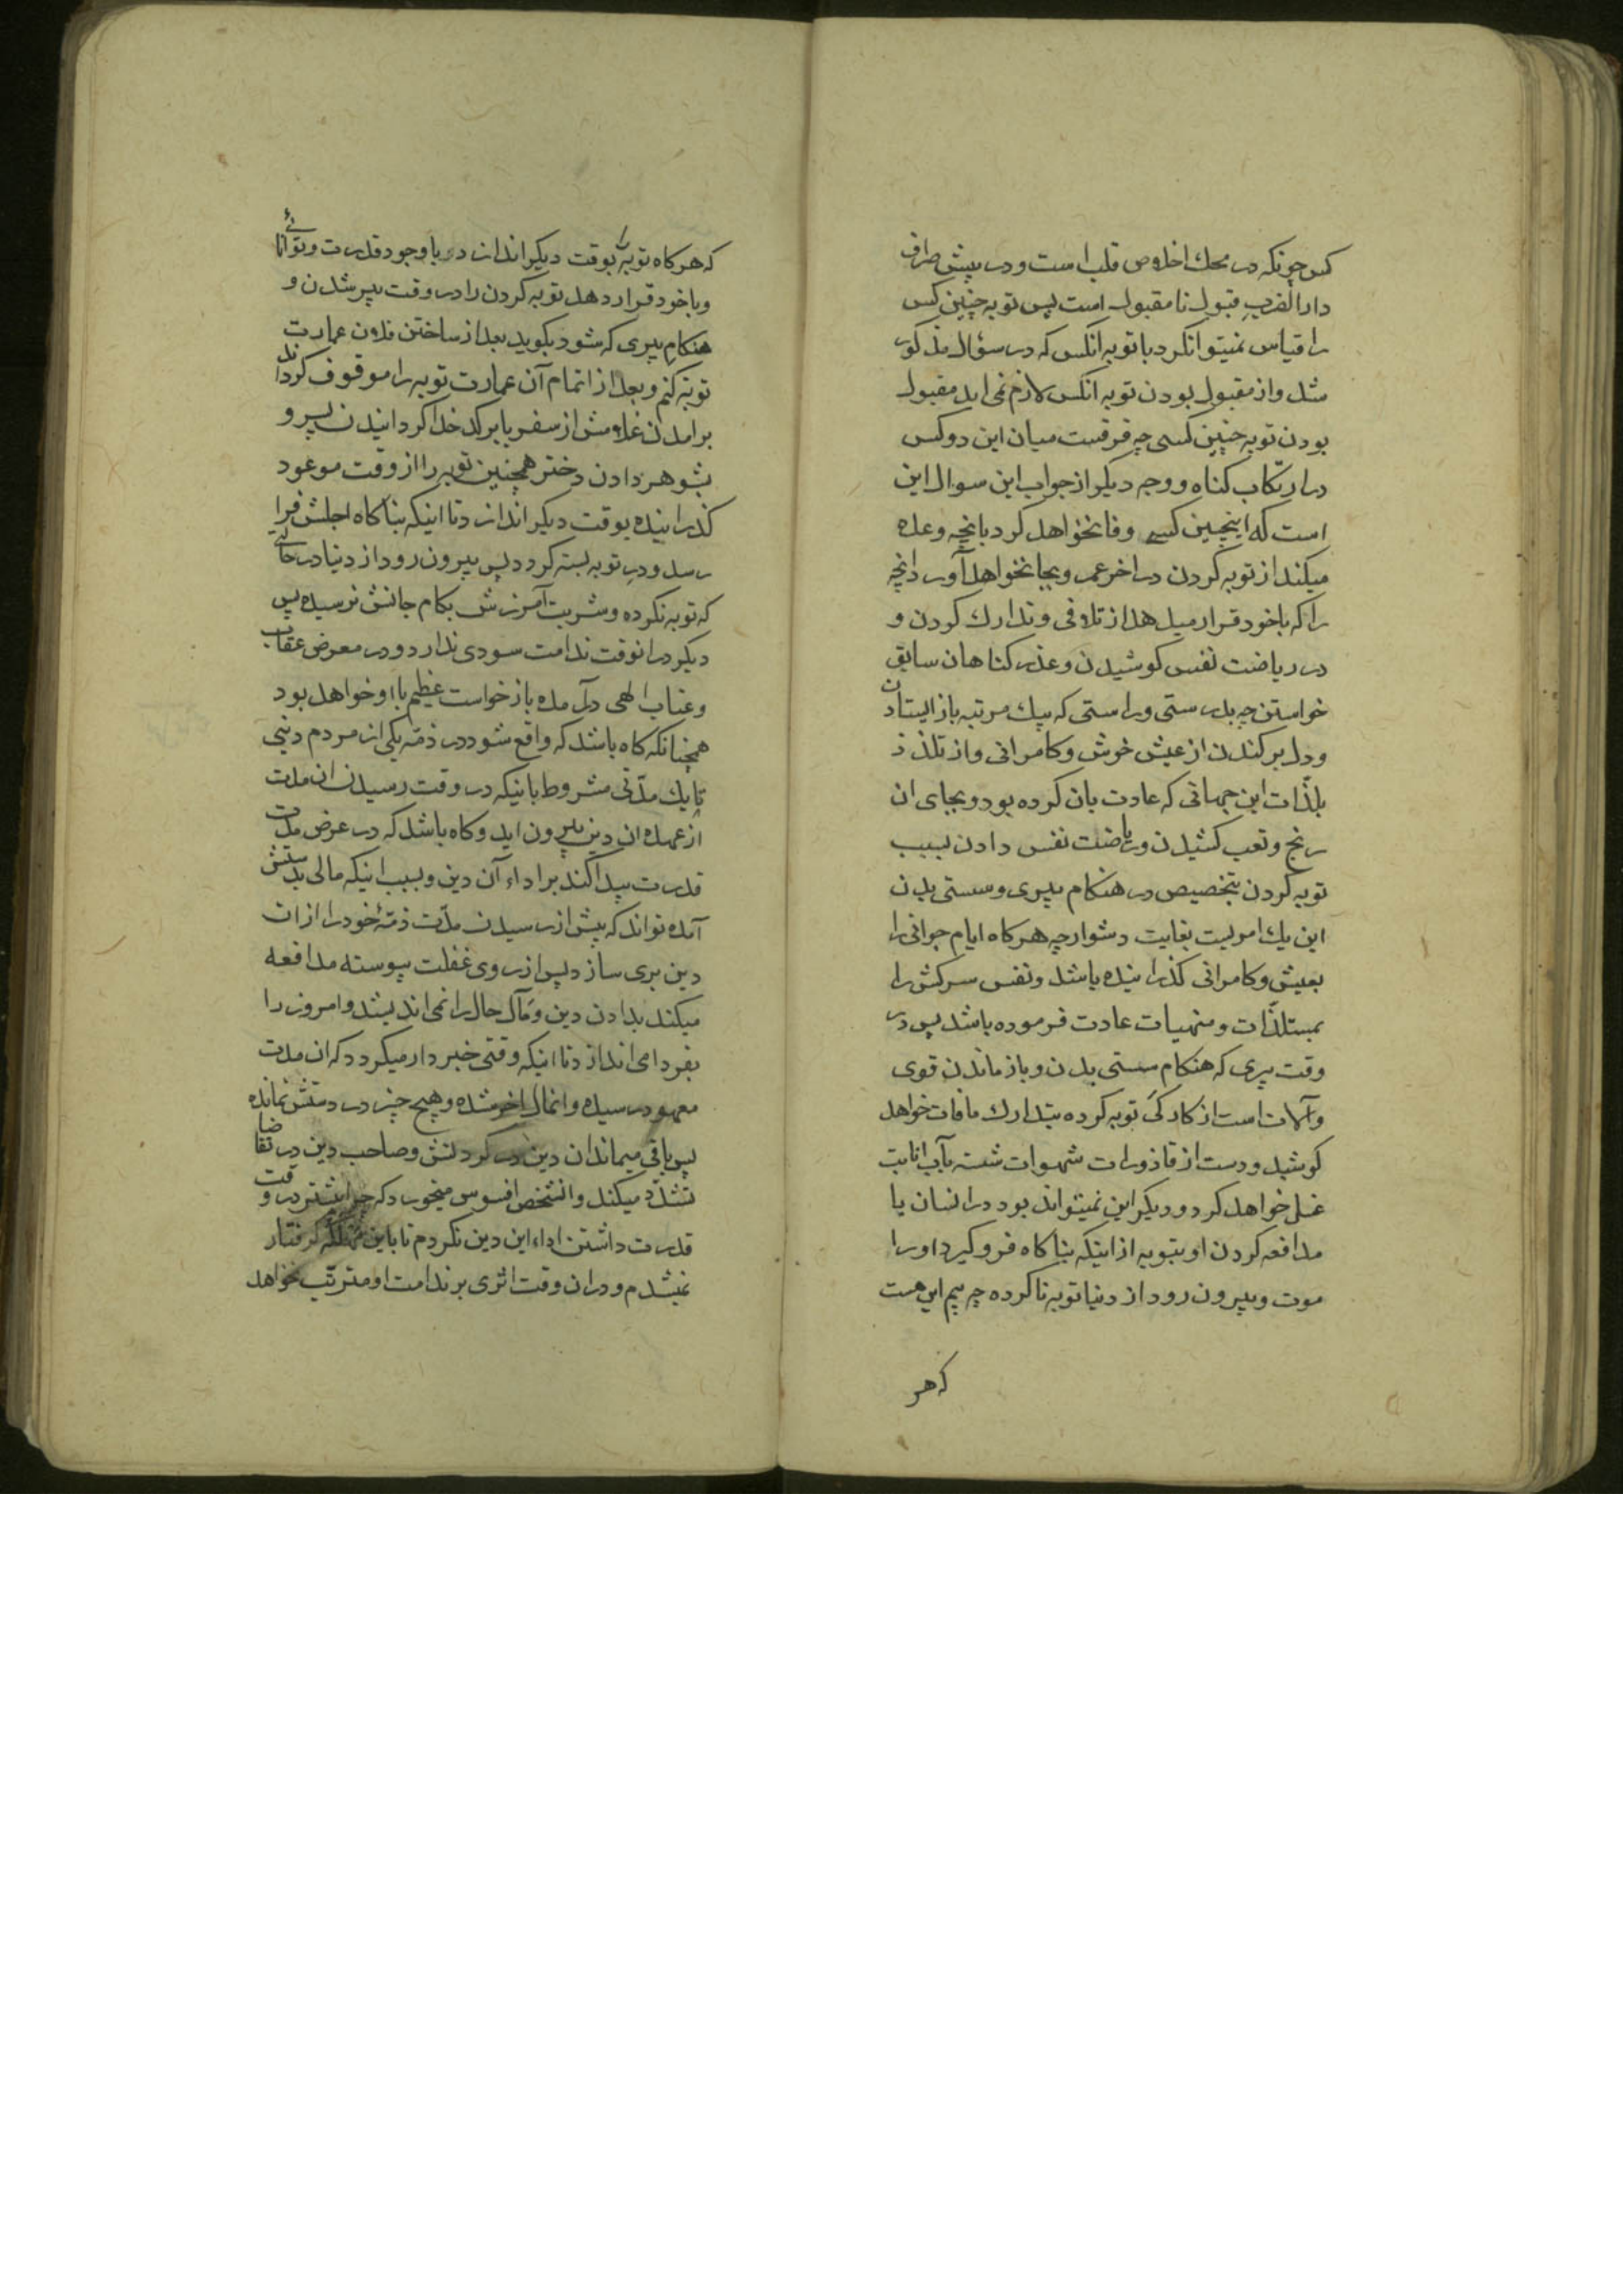 کس چونکه در محک اخلاص قلب است و در پیش صراف
دار الضرب قبول نامقبول است پس توبه چنین کس
را قیاس نمیتوان کرد با توبه انکس که در سؤال مذکور
شد و از مقبول بودن توبه انکس لازم نمی اید مقبول
بودن توبه چنین کسی چه فرقست میان این دو کس
در ارتکاب کناه و وجه دیکر از جواب این سوال این
است که اینچنین کسی وفا نخواهد کرد بانچه وعده
میکند از توبه کردن در اخر عمر و بجا نخواهد آورد انچه
را که با خود قرار میدهد از تلافی و تدارک کردن و
در ریاضت نفس کوشیدن و عذر کناهان سابق
خواستن چه بدرستی و راستی که بیک مرتبه باز ایستادن
و دل بر کندن از عیش خوش و کامرانی و از تلذذ
بلذّات این جهانی که عادت بان کرده بود و بجای ان
رنج و تعب کشیدن و ریاضت نفس دادن بسبب
توبه کردن بتخصیص در هنکام پیری و سستی بدن
این یک امریست بغایت دشوار چه هرکاه ایام جوانی را
بعیش و کامرانی کذرانیده باشد و نفس سرکش را
بمستلذّات و منهیات عادت فرموده باشد پس در
وقت پیری که هنکام سستی بدن و باز ماندن قوی
و آلات است از کارکی توبه کرده بتدارک مافات خواهد
کوشید و دست از قاذورات شهوات شسته بآب انابت
غسل خواهد کرد و دیکر این نمیتواند بود در انسان با
مدافعه کردن او بتوبه از اینکه بناکاه فرو کیرد او را
موت و بیرون رود از دنیا توبه ناکرده چه بیم این هست
که هر
که هرکاه توبه را بوقت دیکر اندازد با وجود قدرت و توانائی
و با خود قرار دهد توبه کردن را در وقت پیر شدن و
هنکام پیری که شود بکوید بعد از ساختن فلان عمارت
توبه کنم و بعد از اتمام آن عمارت توبه را موقوف کرداند
برامدن غلامش از سفر یا بر کدخدا کردانیدن پسر و
بشوهر دادن دختر همچنین توبه را از وقت موعود
کذرانیده بوقت دیکر اندازد تا اینکه بناکاه اجلش فرا
رسد و در توبه بسته کردد پس بیرون رود از دنیا در حالتی
که توبه نکرده و شربت آمرزش بکام جانش نرسیده پس
دیکر در انوقت ندامت سودی ندارد و در معرض عقاب
و عتاب الهی درآمده بازخواست عظیم با او خواهد بود
همچنانکه کاه باشد که واقع شود در ذمّه یکی از مردم دینی
تا یک مدّتی مشروط باینکه در وقت رسیدن ان مدت
از عهده ان دین بیرون اید و کاه باشد که در عرض مدت
قدرت پیدا کند بر اداء آن دین و بسبب اینکه مالی بدستش
آمده تواند که پیش از رسیدن مدّت ذمّهٔ خود را از ان
دین بری سازد پس از روی غفلت پیوسته مدافعه
میکند بدادن دین و مآل حال را نمی اندیشد و امروز را
بفردا می اندازد تا اینکه وقتی خبردار میکردد که ان مدت
معهود رسیده و انمال اخر شده و هیچ چیز در دستش نمانده
پس باقی میماند ان دین در کردنش و صاحب دین در تقاضا
تشدّد میکند و انشخص افسوس میخورد که چرا پیشتر در وقت
قدرت داشتن اداء این دین نکردم تا باین مهلکه کرفتار
نمیشدم و در ان وقت اثری بر ندامت او مترتّب نخواهد